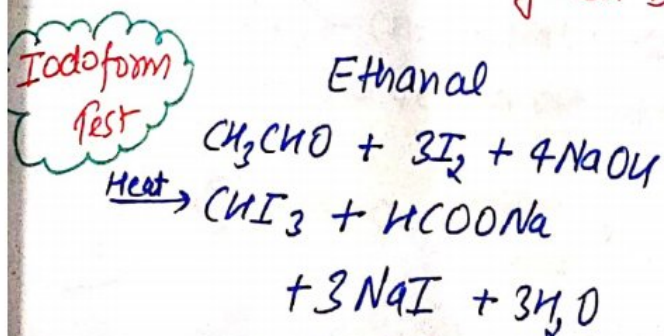 Iodoform
Test
Ethanal
CH₃CHO + 3I₂ + 4NaOH
Heat→ CHI₃ + HCOONa
+ 3NaI + 3H₂O